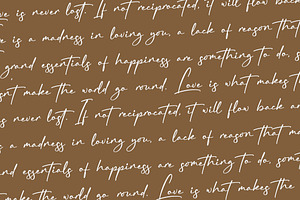 ve is never lost. If not reciprocated, it will flow back
ve is a madness in loving you, a lack of reason that
grand essentials of happiness are something to do, s
sn't make the world go round. Love is what makes t
is never lost. If not reciprocated, it will flow back a
is a madness in loving you, a lack of reason that m
nd essentials of happiness are something to do, some
make the world go round. Love is what makes the